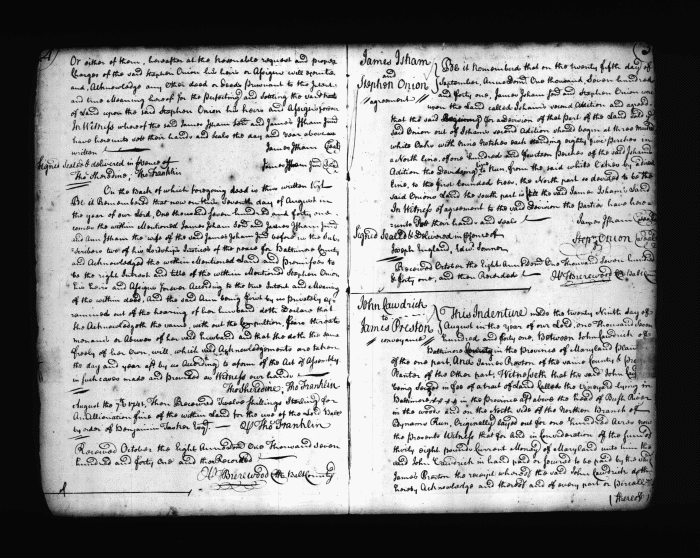 Or either of them, hereafter at the reasonable request and proper
Charges of the said Stephen Onion his heirs or Assigns will execute
and Acknowledge any other deed or Deeds Pursuant to the Intent
and true Meaning hereof for the Perfecting and Settling the said tract
of Land upon the said Stephen Onion his heirs and Assigns forever
In Witness whereof the said James Isham Senr and James Isham Junr
have hereunto sett their hands and seals the day and year above
written
James Isham Seal
Signed Sealed & delivered in presence of
James Isham Junr Seal
Tho: Sheredine, Tho: Franklin
On the Back of which foregoing deed is thus written Vizt
Be it Remembered that now on this Seventh day of August in
the year of our Lord, One thousand seven hundred and forty one
comes the within Mentioned James Isham Senr and James Isham Junr
and Ann Isham the wife of the said James Isham Junr before us the Sub-
scribers two of his Lordships Justices of the peace for Baltimore County
and Acknowledged the within Mentioned Land and Premisses to
be the right Interest and title of the within Mentioned Stephen Onion
his heirs and Assigns forever According to the true Intent and Meaning
of the within deed, and the said Ann being first by us Privately Ex-
amined out of the hearing of her husband doth Declare that
she Acknowledgeth the same, with out the Compulsion, fears threats
menaces or Abuses of her said husband and that she doth the same
freely of her own will, which said Acknowledgements are taken
the day and year afd by us According to a form of the Act of Assembly
in such cases made and provided as Witness our hands
Tho: Sheredine, Tho: Franklin
August the 7th 1741, Then Received Twelve shillings Sterling for
An Alienation fine of the within Land for the use of the Lord Balt
by order of Benjamin Tasker Esqr Pr Tho: Franklin
Received October the Eight Anno Dom One Thousand seven
hundred and forty one and then Recorded
Pr Brerewood Clk Balt County
James Isham
and
Stephen Onion
agreement
Be it Remembered that on the twenty fifth day of
September, Anno Dom One thousand, seven hundred
and forty one, James Isham Senr and Stephen Onion
upon the Land called Isham's second Addition and agreed
that the said for a devision of that part of the Land sold
said Onion out of Isham's second Addition should begin at three
white Oaks with nine notches each standing eighty five Perches in
a North line, of one hundred and fourteen Perches of the said Isham's
Addition the Devideing to run from the said white Oakes by a
line, to the first bounded trees, the North part so devided to be the
said Onions Land the south part is the said James Isham's Land
In Witness of agreement to the said Devision the parties have
sett their hands and seals
James Isham Seal
Signed Sealed & Delivered in presence of
Step: Onion Seal
Joseph England, Edw: Connor
Received October the Eight Anno Dom One thousand seven hundred
& forty one, and then Recorded
Pr Brerewood Clk Balt
John Cawdrich
to
James Preston
conveyance
This Indenture made the twenty Ninth day of
August in the year of our Lord, one Thousand Seven
hundred and forty one, Between John Cawdrich of
Baltimore County in the Province of Maryland Planter
of the one part And James Preston of the same county &
Planter of the Other part, Witnesseth that the said John
being Seized in fee of a tract of Land Called the lying in
Baltimore in the Province afd above the head of Bush River
in the woods and on the North side of the Northern Branch of
Bynams Run Originally layed out for one hundred Acres now
the presents Witness that for and in Consideration of the sum of
thirty eight pounds Current Money of Maryland unto him the
said John Cawdrich in hand paid or secured to be paid by the said
James Preston the receipt whereof the said John Cawdrich doth
hereby Acknowledge and thereof and of every part or parcell
thereof